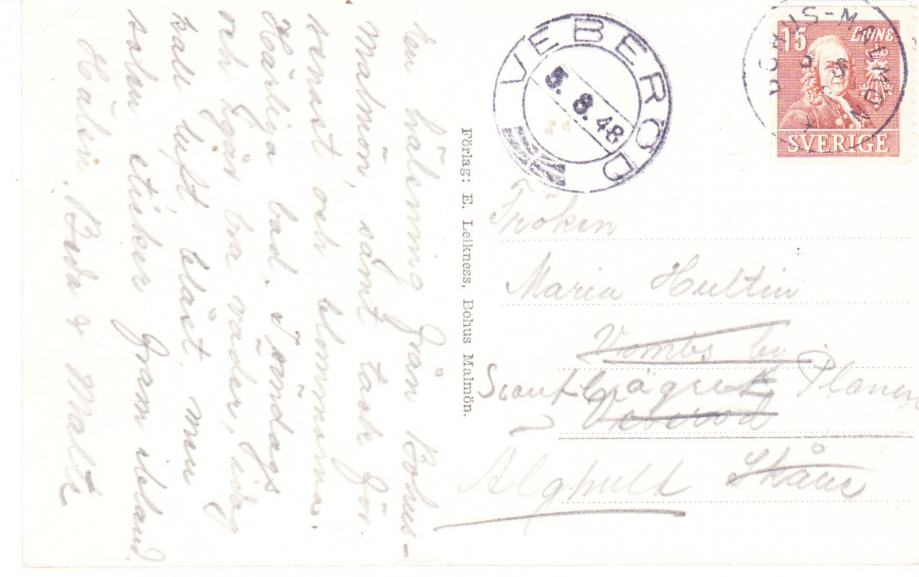 En hälsning från Bohus-
Malmön, samt tack för
senast och blommorna.
Härliga bad. I söndags
och igår bra väder, idag
kall luft, blåst, men
solen sticker fram ibland.
Hälsn. Beda & Malte
Förlag: E. Leikness, Bohus Malmön.
VEBERÖD
5.8.48
BOHUS-MALMÖN
15
LINNE
SVERIGE
Fröken
Maria Hultin
Vombs by
Scoutlägret Planen
Veberöd
Älghult Skåne